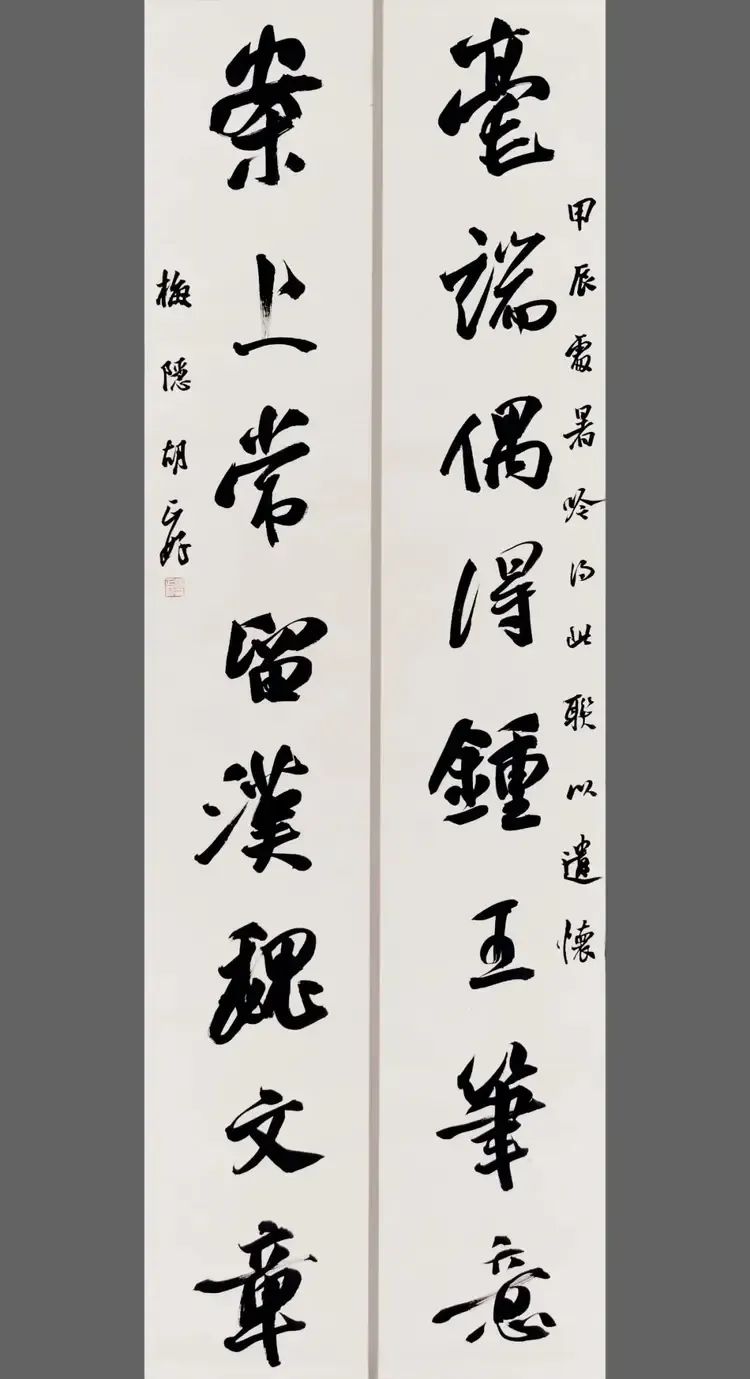 甲辰處暑吟得此聯以遣懷
毫端偶得鍾王筆意
案上常留漢魏文章
梅隱胡